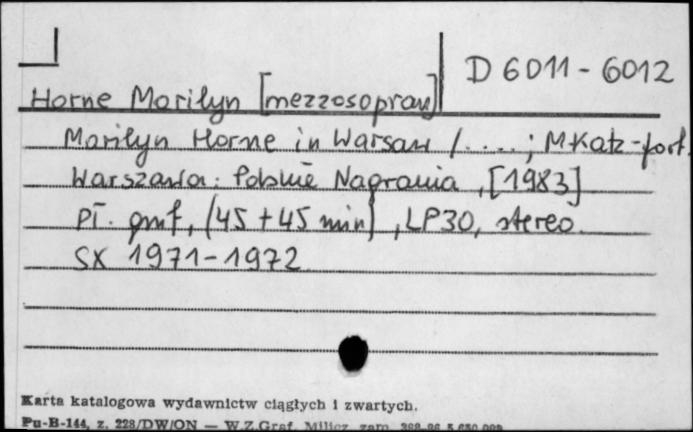 D 6011 - 6012
Horne Marilyn [mezzosopran]
Marilyn Horne in Warsaw / .... ; M. Katz - fort.
Warszawa : Polskie Nagrania , [1983]
pł. gmf, (45 + 45 min) , LP30, stereo.
SX 1971 - 1972
Karta katalogowa wydawnictw ciągłych i zwartych.
Pu-B-144, z. 228/DW/ON — W.Z.Graf. Milicz zam.